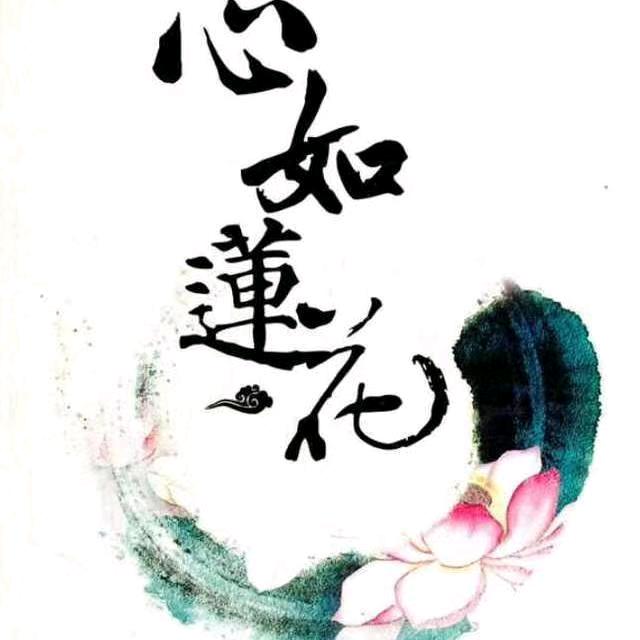 心如蓮花